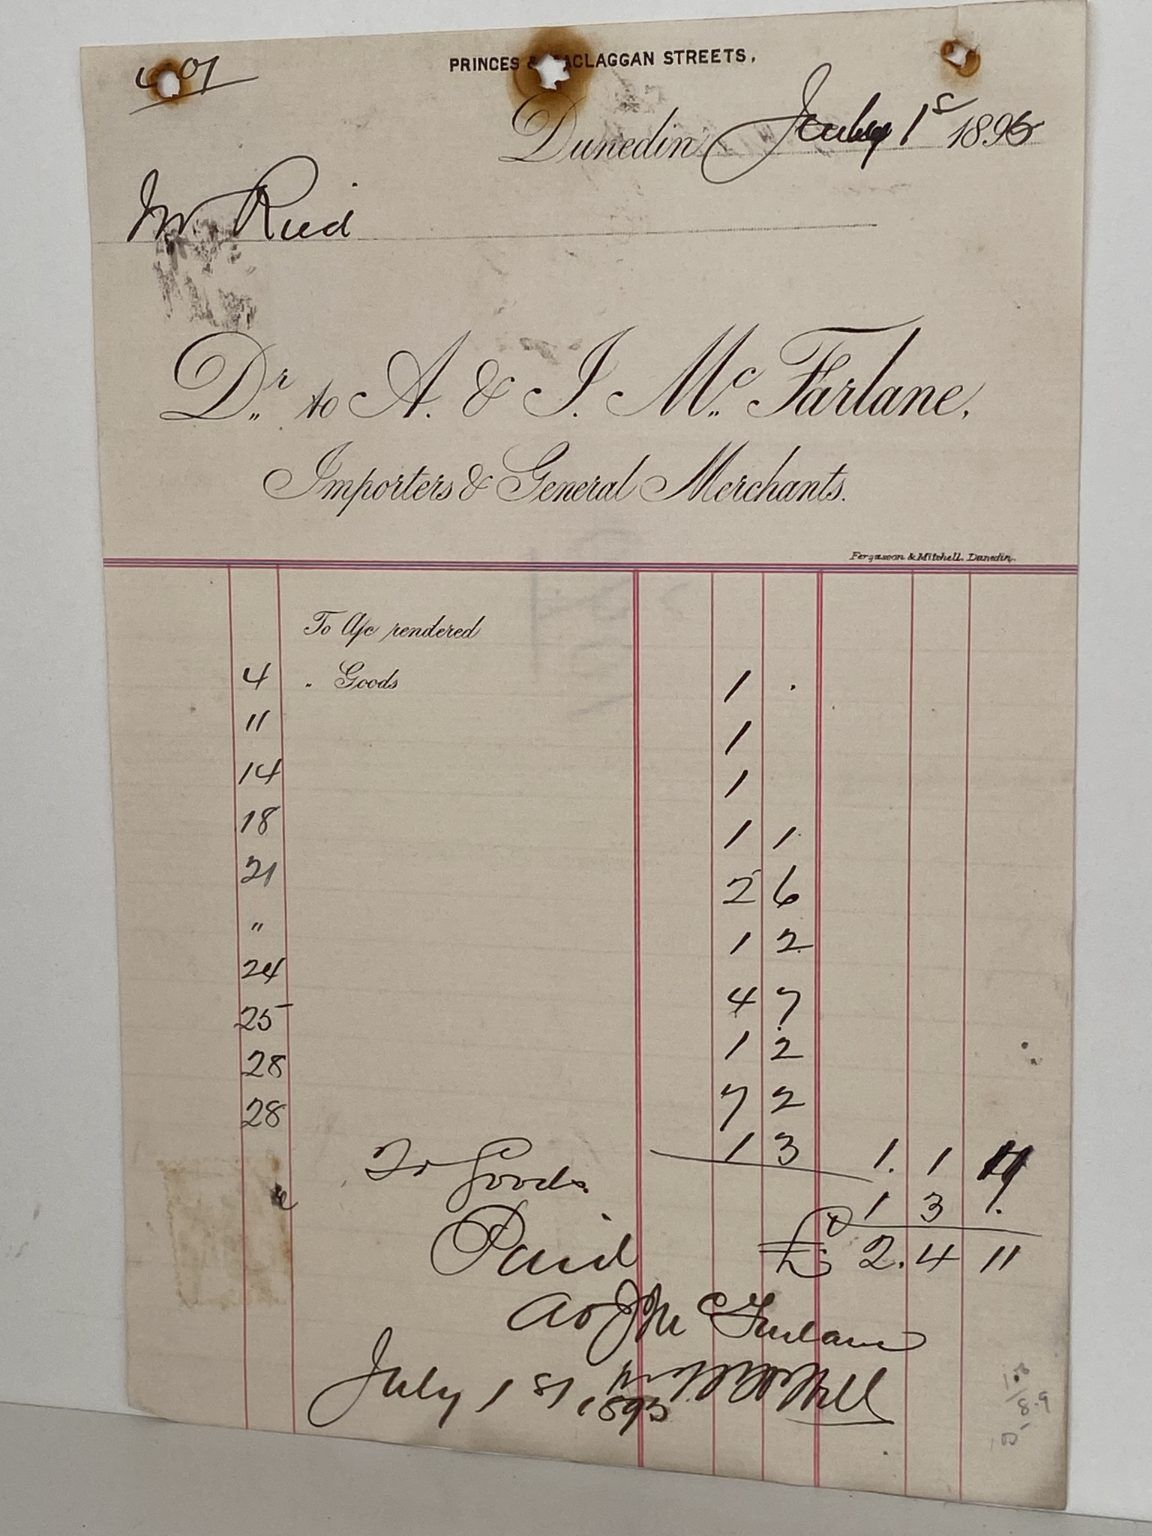 PRINCES & MACLAGGAN STREETS,
Dunedin July 1s 1895
Mr Reid
Dr. to A. & J. Mc. Farlane,
Importers & General Merchants.
Fergusson & Mitchell. Dunedin.
To A/c rendered
4 " Goods 1 .
11 1
14 1
18 1 1
21 2 6
" 1 2
24 4 7
25 1 2
28 7 2
28 1 3 1. 1
To Goods 1 3
Paid £ 2. 4 11
A & J Mc Farlane
July 1st 1895